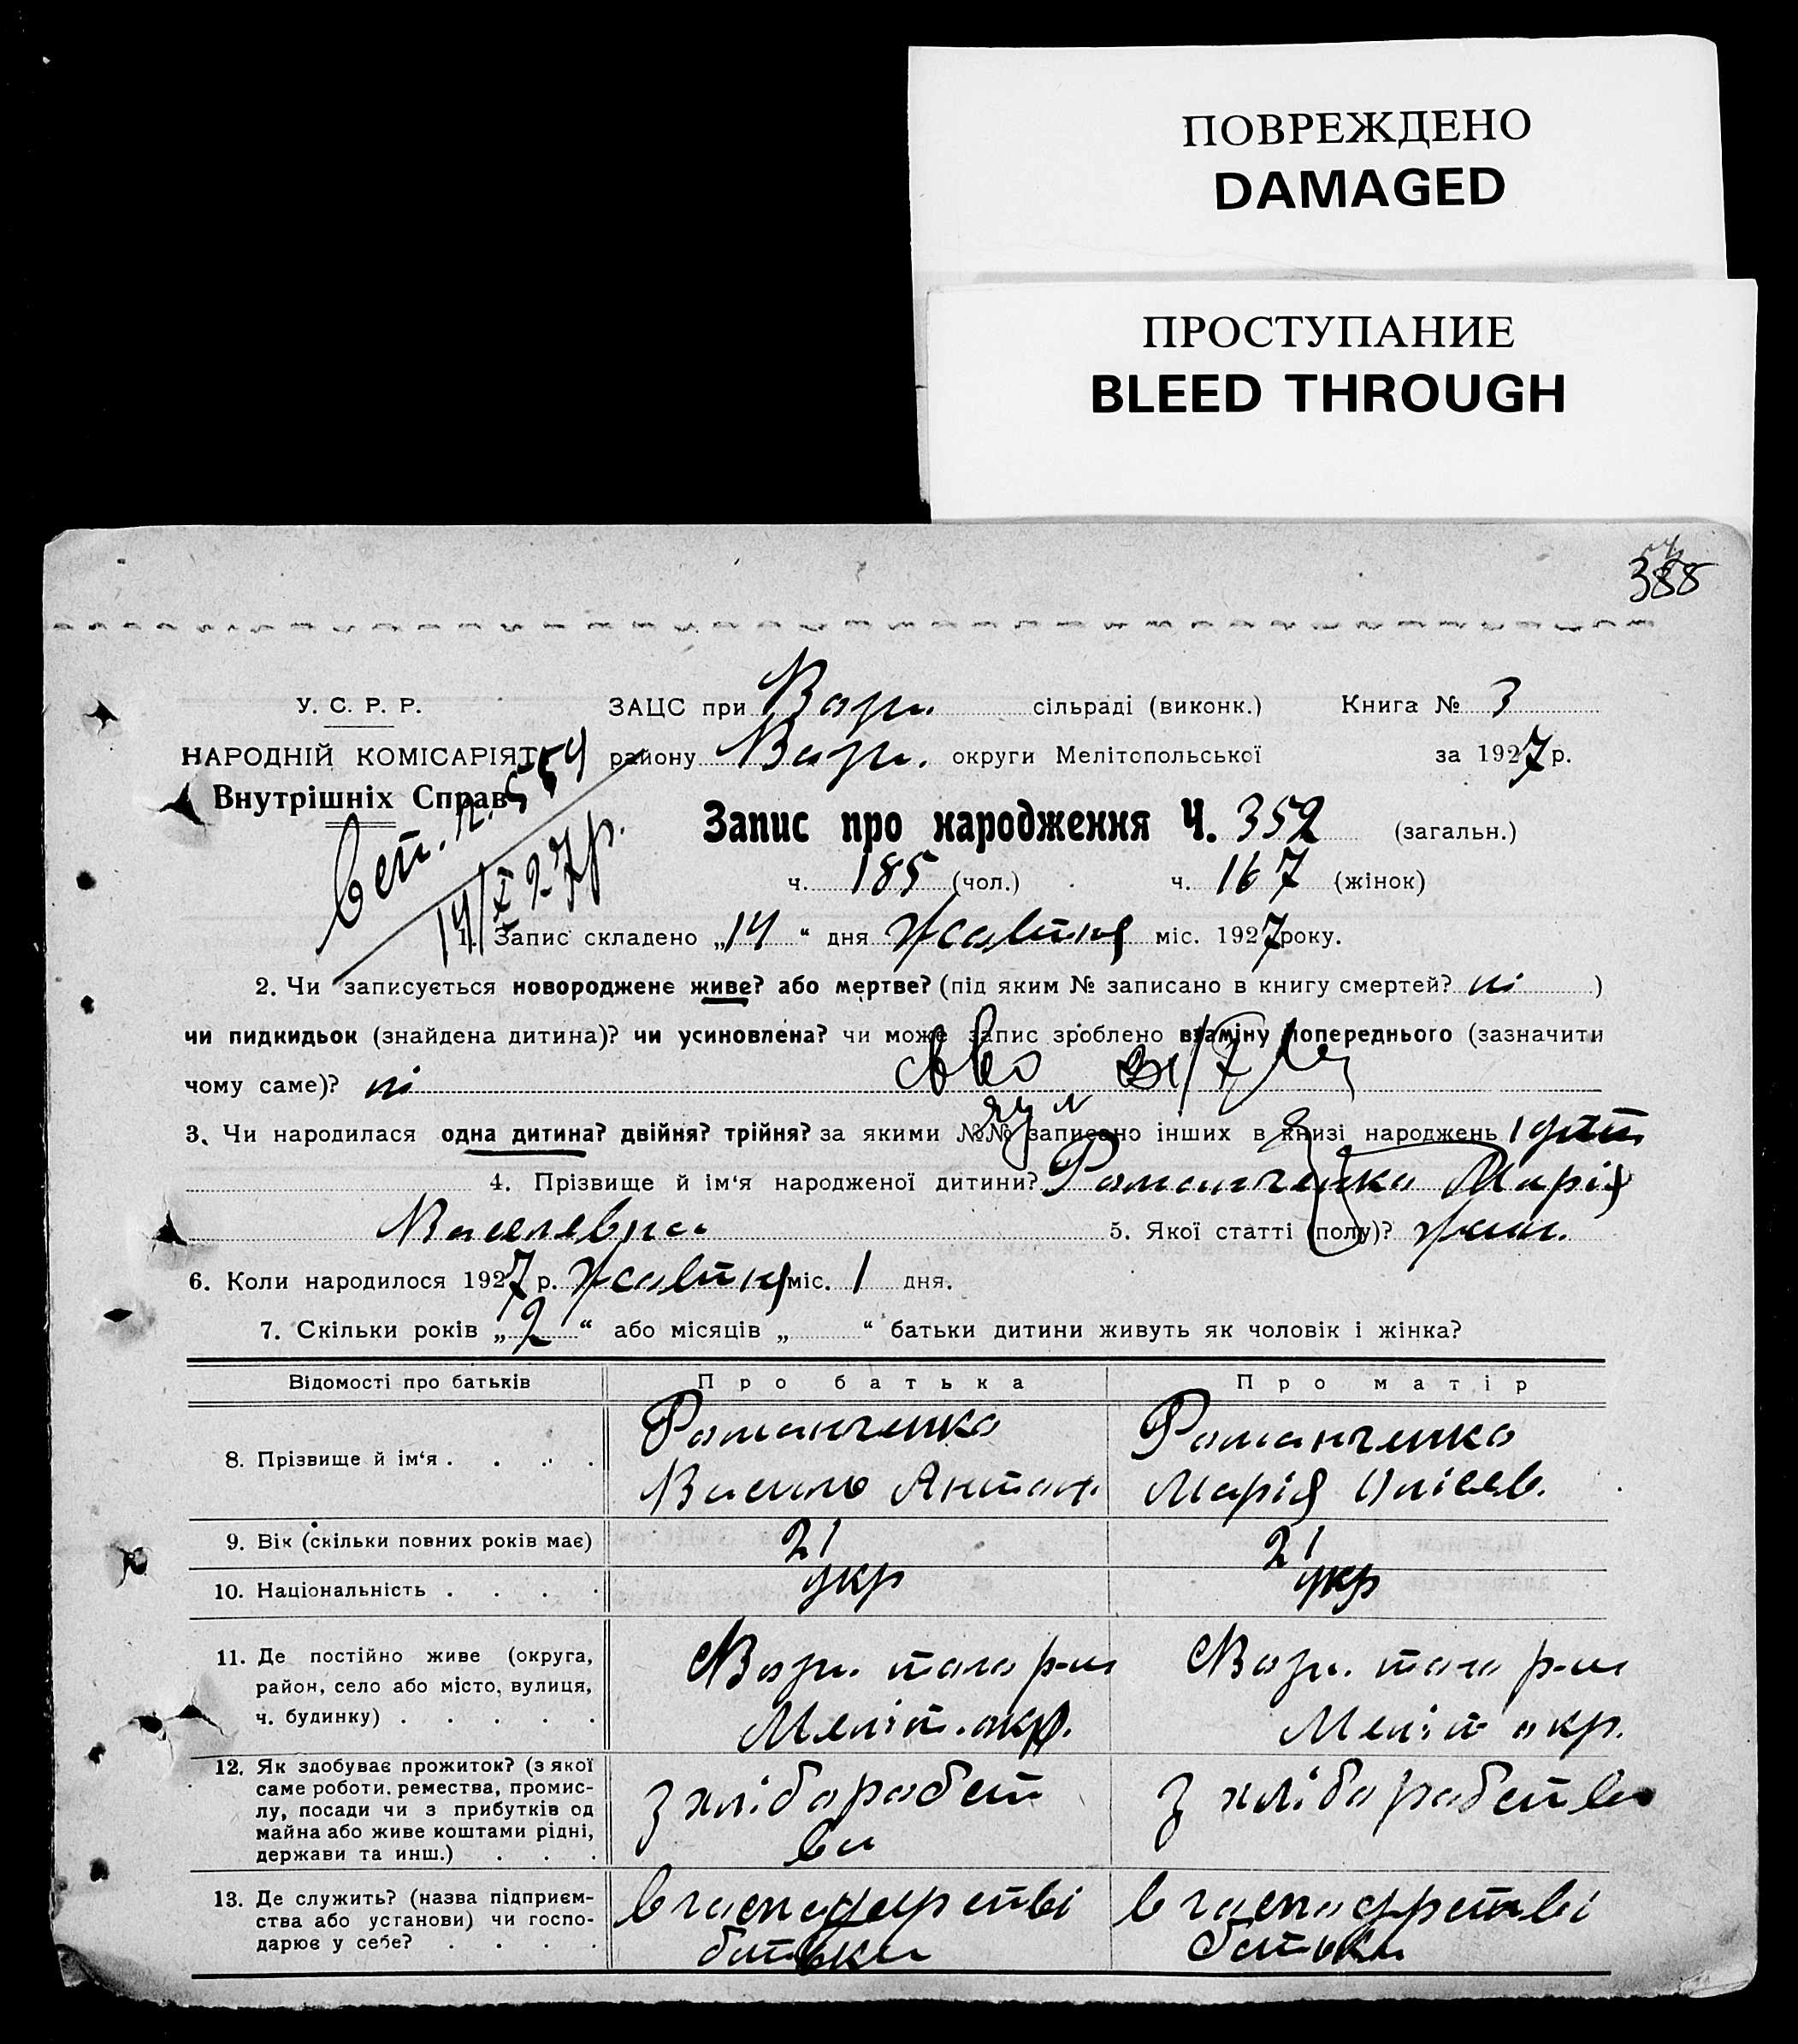 ПОВРЕЖДЕНО
DAMAGED
ПРОСТУПАНИЕ
BLEED THROUGH
388
У. С. Р. Р. ЗАЦС при сільраді (виконк.) Книга № 3
НАРОДНІЙ КОМІСАРІЯТ району округи Мелітопольської за 1927 р.
Внутрішніх Справ
Запис про народження Ч. 352 (загальн.)
14/X 27р.
ч. 185 (чол.) ч. 167 (жінок)
1. Запис складено „14“ дня жовтня міс. 1927 року.
2. Чи записується новороджене живе? або мертве? (під яким № записано в книгу смертей? ні )
чи пидкидьок (знайдена дитина)? чи усиновлена? чи може запис зроблено взаміну попереднього (зазначити
чому саме)? ні
3. Чи народилася одна дитина? двійня? трійня? за якими №№ записано інших в книзі народжень 1
4. Прізвище й ім‘я народженої дитини? Романченко Марія
Василевна 5. Якої статті (полу)? жин.
6. Коли народилося 1927 р. жовтня міс. 1 дня.
7. Скільки років „2“ або місяців „ “ батьки дитини живуть як чоловік і жінка?
Відомості про батьків Про батька Про матір
8. Прізвище й ім‘я . . . . Романченко Романченко
Василь Антон. Марія
9. Вік (скільки повних років має) 21 21
10. Національність . . . . укр укр
11. Де постійно живе (округа,
район, село або місто, вулиця, того р-ну того р-ну
ч. будинку) . . . . . Меліт. окр. Меліт окр.
12. Як здобуває прожиток? (з якої
саме роботи, ремества, промис-
лу, посади чи з прибутків од з хліборобст з хліборобства
майна або живе коштами рідні, ва
держави та инш.) . . .
13. Де служить? (назва підприєм- в господарстві в господарстві
ства або установи) чи госпо-
дарює у себе? . . . . батька батька